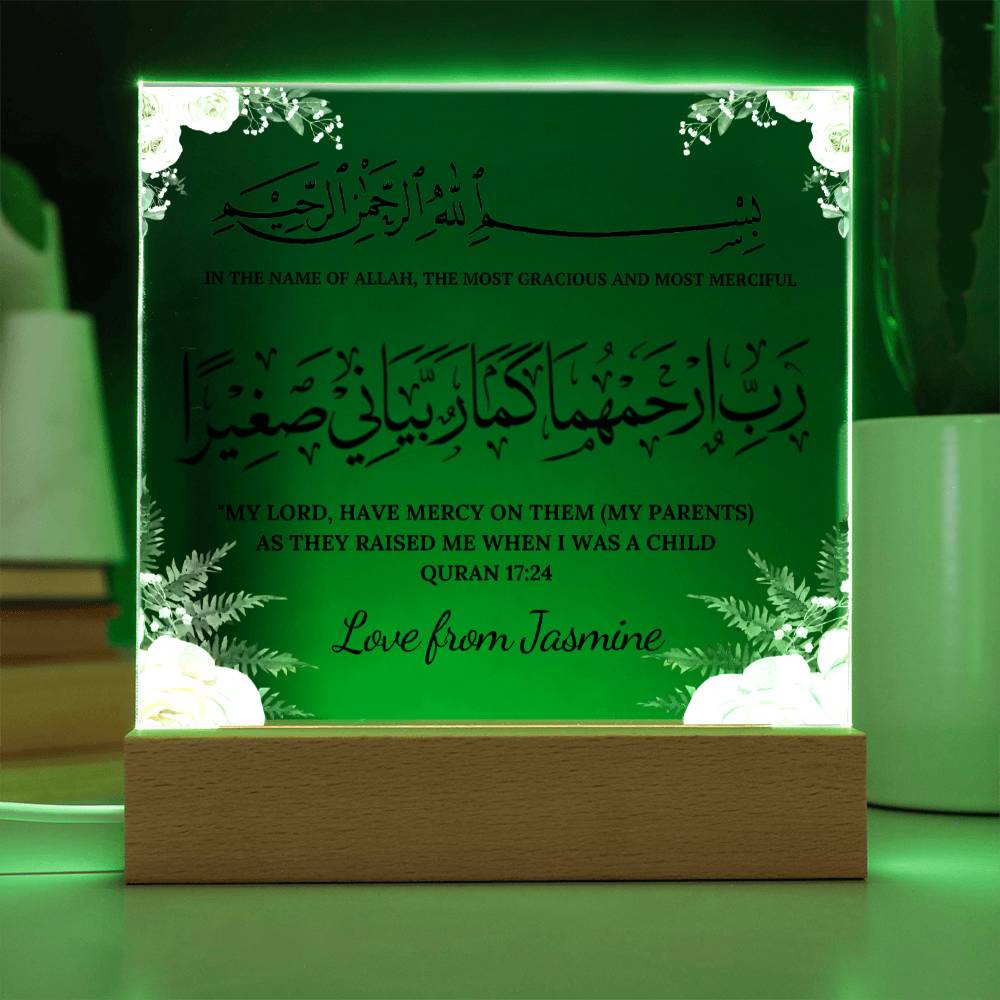 بِسْمِ ٱللَّهِ ٱلرَّحْمَٰنِ ٱلرَّحِيمِ
IN THE NAME OF ALLAH, THE MOST GRACIOUS AND MOST MERCIFUL
رَبِّ ارْحَمْهُمَا كَمَا رَبَّيَانِي صَغِيرًا
"MY LORD, HAVE MERCY ON THEM (MY PARENTS)
AS THEY RAISED ME WHEN I WAS A CHILD
QURAN 17:24
Love from Jasmine